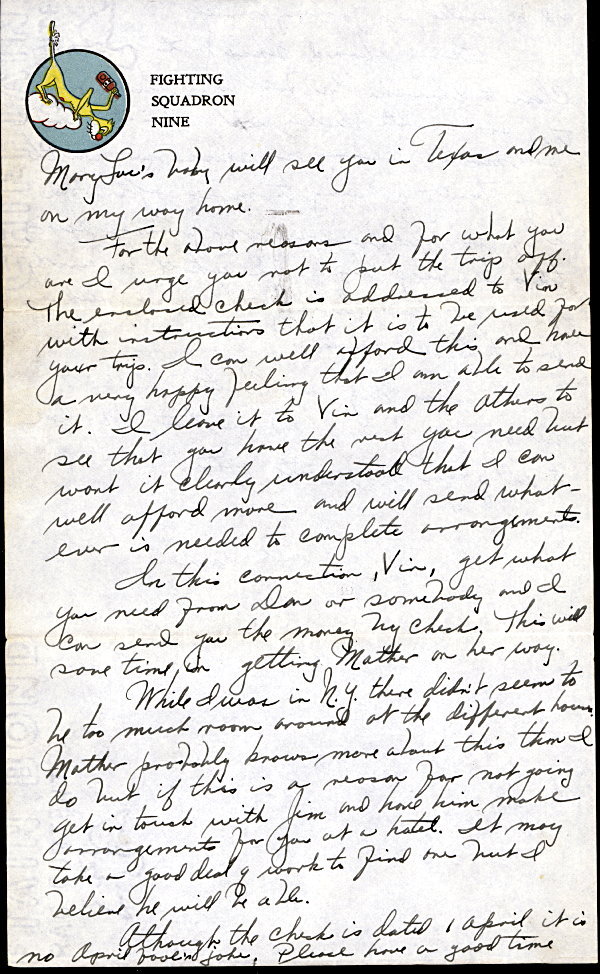 FIGHTING
SQUADRON
NINE
Mary Lou's baby will see you in Texas and me
on my way home.
For the above reasons and for what you
are I urge you not to put the trip off.
The enclosed check is addressed to Vin
with instructions that it is to be used for
your trip. I can well afford this and have
a very happy feeling that I am able to send
it. I leave it to Vin and the others to
see that you have the rest you need but
want it clearly understood that I can
well afford more and will send what-
ever is needed to complete arrangements.
In this connection, Vin, get what
you need from Dan or somebody and I
can send you the money by check. This will
save time in getting Mother on her way.
While I was in N.Y. there didn't seem to
be too much room around at the different houses.
Mother probably knows more about this than I
do but if this is a reason for not going
get in touch with Jim and have him make
arrangements for you at a hotel. It may
take a good deal of work to find one but I
believe he will be able.
Although the check is dated 1 April it is
no April fool's joke. Please have a good time